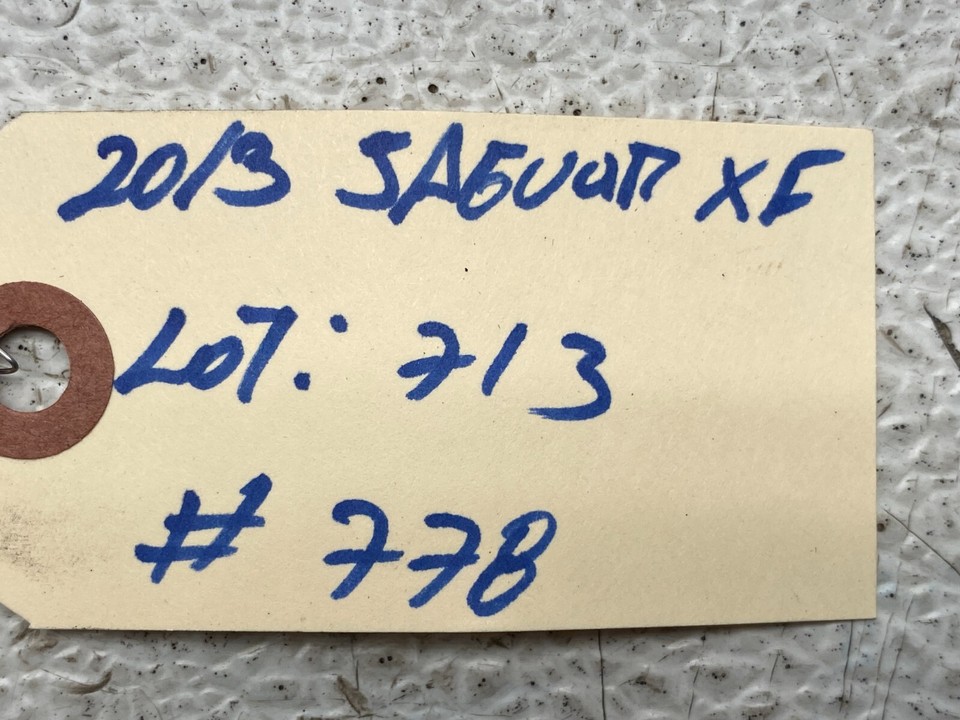 2013 JAGUAR XF
LOT: 713
# 778